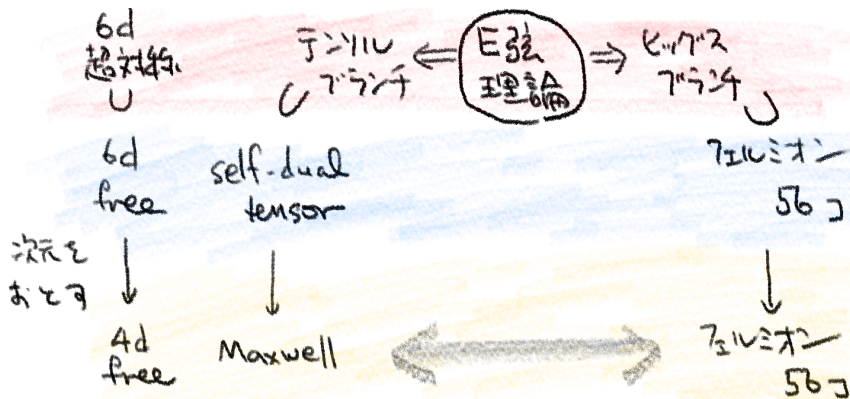 6d
超対称
テンソル
ブランチ
⇐
E弦
理論
⇒
ヒッグス
ブランチ
6d
free
self-dual
tensor
フェルミオン
56コ
次元を
おとす
4d
free
Maxwell
フェルミオン
56コ